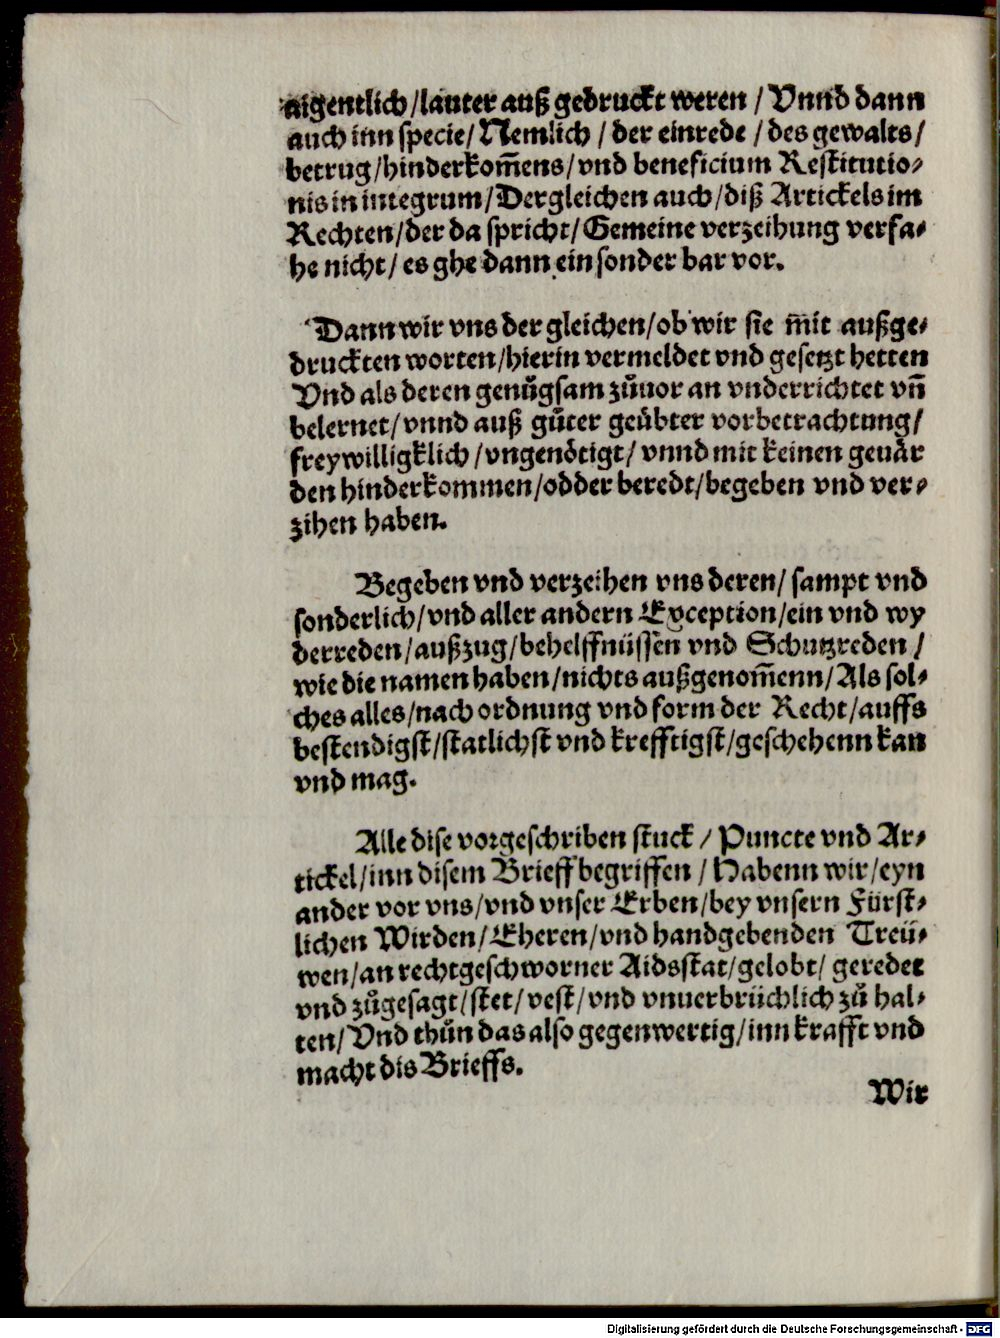 aigentlich/lauter auß gedruckt weren / Vnnd dann
auch inn specie/ Nemlich / der einrede / des gewalts/
betrug/hinderkom̃ens/vnd beneficium Restitutio⸗
nis in integrum/Dergleichen auch/diß Artickels im
Rechten/der da spricht/Gemeine verzeihung verfa⸗
he nicht/ es ghe dann ein sonder bar vor.
Dann wir vns der gleichen/ob wir sie mit außge⸗
druckten worten/hierin vermeldet vnd gesetzt hetten
Vnd als deren genůgsam zůuor an vnderrichtet vñ
belernet/vnnd auß gůter geübter vorbetrachtung/
freywilligklich/vngenötigt/ vnnd mit keinen geuär
den hinderkommen/odder beredt/begeben vnd ver⸗
zihen haben.
Begeben vnd verzeihen vns deren/ sampt vnd
sonderlich/vnd aller andern Exception/ein vnd wy
derreden/außzug/behelffnüssen vnd Schutzreden /
wie die namen haben/nichts außgenom̃enn/Als sol⸗
ches alles/nach ordnung vnd form der Recht/auffs
bestendigst/statlichst vnd krefftigst/geschehenn kan
vnd mag.
Alle dise vorgeschriben stuck / Puncte vnd Ar⸗
tickel/inn disem Brieff begriffen / Habenn wir/eyn
ander vor vns/vnd vnser Erben/bey vnsern Fürst⸗
lichen Wirden/Eheren/vnd handgebenden Treü⸗
wen/an rechtgeschworner Aidsstat/gelobt/ geredet
vnd zůgesagt/stet/vest/vnd vnuerbrüchlich zů hal⸗
ten/Vnd thůn das also gegenwertig/inn krafft vnd
macht dis Brieffs.
Wir
Digitalisierung gefördert durch die Deutsche Forschungsgemeinschaft - DFG